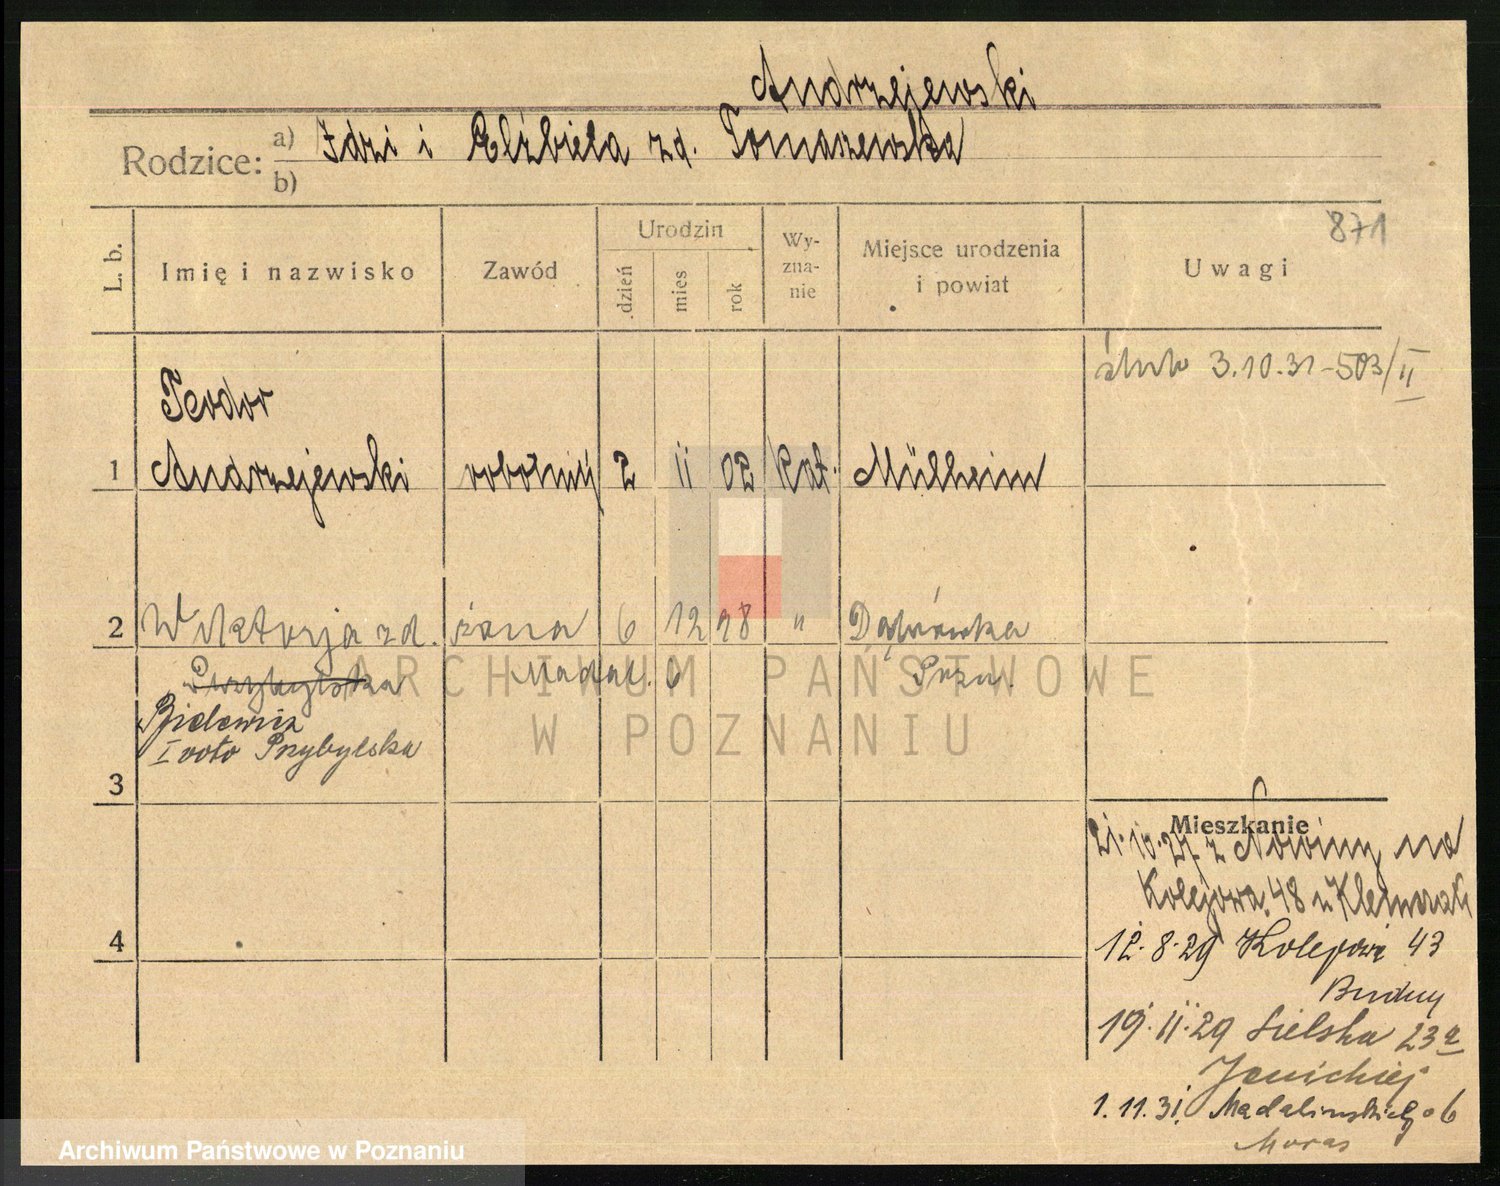 Andrzejewski
Rodzice: a) Idzi i Elżbieta zd. Tomaszewska
b)
871
L. b.
Imię i nazwisko
Zawód
Urodzin
dzień
mies
rok
Wy-
zna-
nie
Miejsce urodzenia
i powiat
Uwagi
ślub 3.10.31-503/II
Teodor
1 Andrzejewski robotnik 2 11 02 Kat. Mülheim
2 Wiktorja zd. żona 6 12 98 " Dąbrówka
Przybylska Madal. 6 Pozn.
I voto Przybylska
3
Mieszkanie
21.10.27 z Nowiny na
Kolejowa 48 u
12.8.29 Kolejowa 43
19.11.29 Sielska 23a
Janickiej
1.11.31. Madalinskiego 6
Moras
4
ARCHIWUM PAŃSTWOWE
W POZNANIU
Archiwum Państwowe w Poznaniu